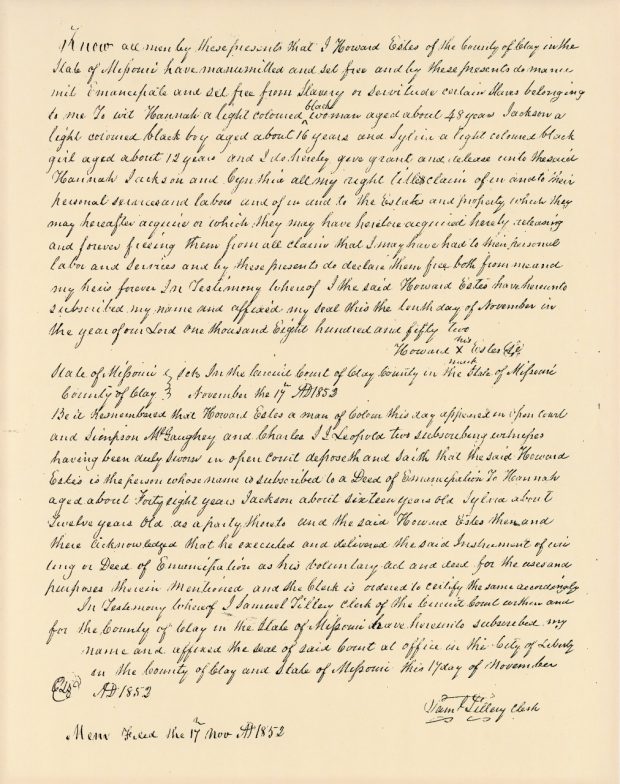 Know all men by these presents that I Howard Estes of the County of Clay in the
State of Missouri have manumitted and set free and by these presents do manu
mit Emancipate and set free from Slavery or servitude certain slaves belonging
to me To wit Hannah a light coloured black woman aged about 48 years Jackson a
light coloured black boy aged about 16 years and Sylvia a light coloured black
girl aged about 12 years and I do hereby give grant and release unto the said
Hannah Jackson and Cynthia all my right title & claim of in and to their
personal services and labors and of in and to the Estate and property which they
may hereafter acquire or which they may have heretofore acquired hereby releasing
and forever freeing them from all claim that I may have had to their personal
labor and services and by these presents do declare them free both from me and
my heirs forever In Testimony whereof I the said Howard Estes have hereunto
subscribed my name and affixed my seal this the tenth day of November in
the year of our Lord One thousand Eight hundred and fifty two
Howard his X mark Estes
State of Missouri } Sct. In the Circuit Court of Clay County in the State of Missouri
County of Clay } November the 17 AD 1852
Be it Remembered that Howard Estes a man of Colour this day appeared in open court
and Simpson McGaughey and Charles J Leopold two subscribing witnesses
having been duly sworn in open court deposeth and saith that the said Howard
Estes is the person whose name is subscribed to a Deed of Emancipation To Hannah
aged about Forty eight years Jackson about sixteen years Old Sylvia about
Twelve years Old as a party thereto and the said Howard Estes then and
there acknowledged that he executed and delivered the said Instrument of wri
ting or Deed of Emancipation as his voluntary act and deed for the uses and
purposes therein mentioned and the Clerk is ordered to certify the same accordingly
In Testimony whereof I Samuel Tillery Clerk of the Circuit Court within and
for the County of Clay in the State of Missouri have hereunto subscribed my
name and affixed the seal of said Court at office in the City of Liberty
in the County of Clay and State of Missouri this 17 day of November
AD 1852
Saml Tillery Clerk
Mem Filed the 17th Nov AD 1852